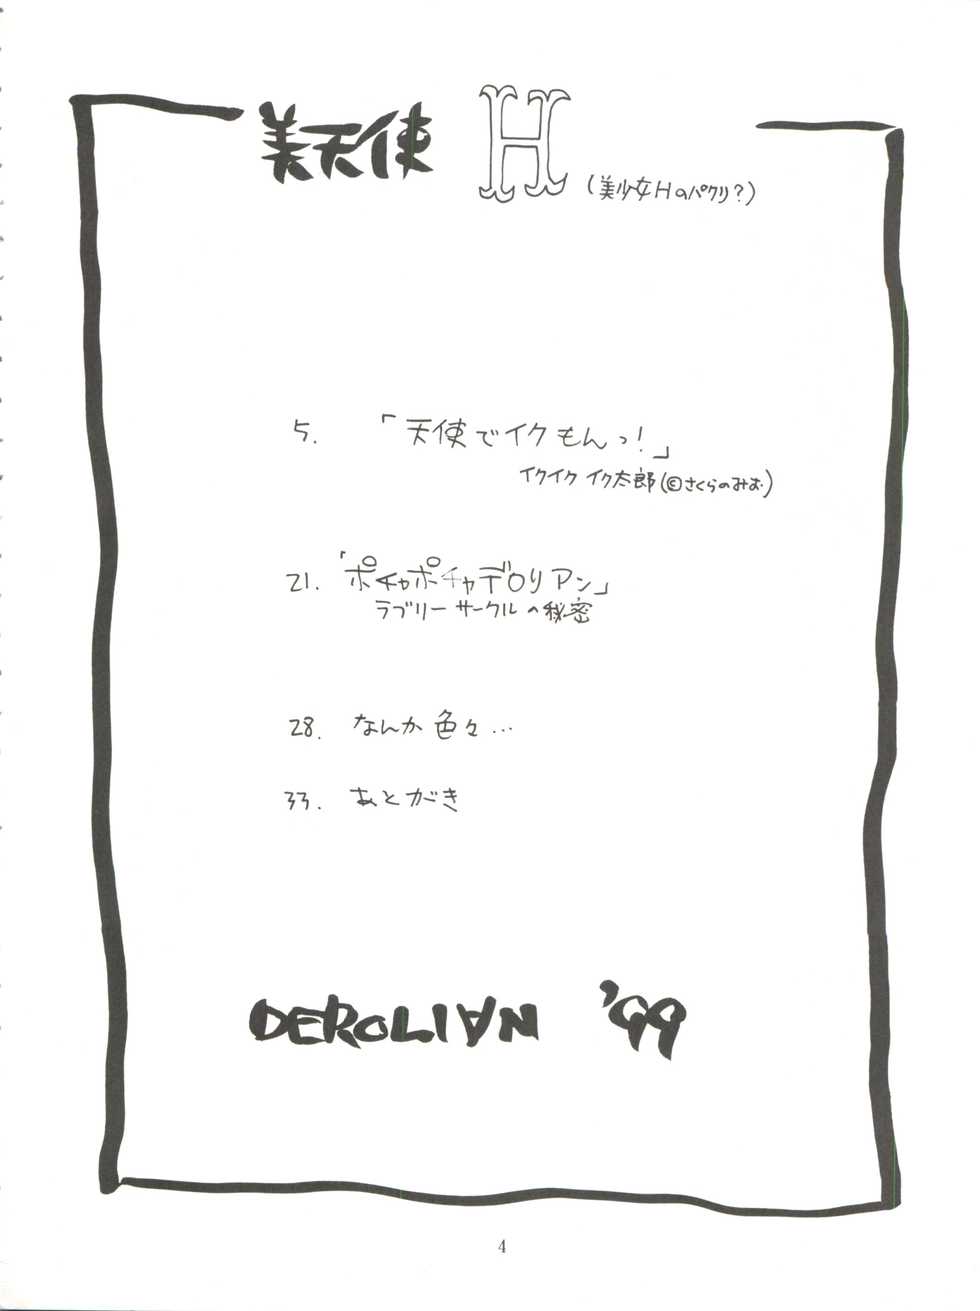 美天使 H (美少女Hのパクリ?)
5. 「天使でイクもんっ!」
イクイク イク太郎(©さくらのみお)
21. 「ポチャポチャデロリアン」
ラブリーサークルの秘密
28. なんか色々…
33. あとがき
DEROLIAN '99
4